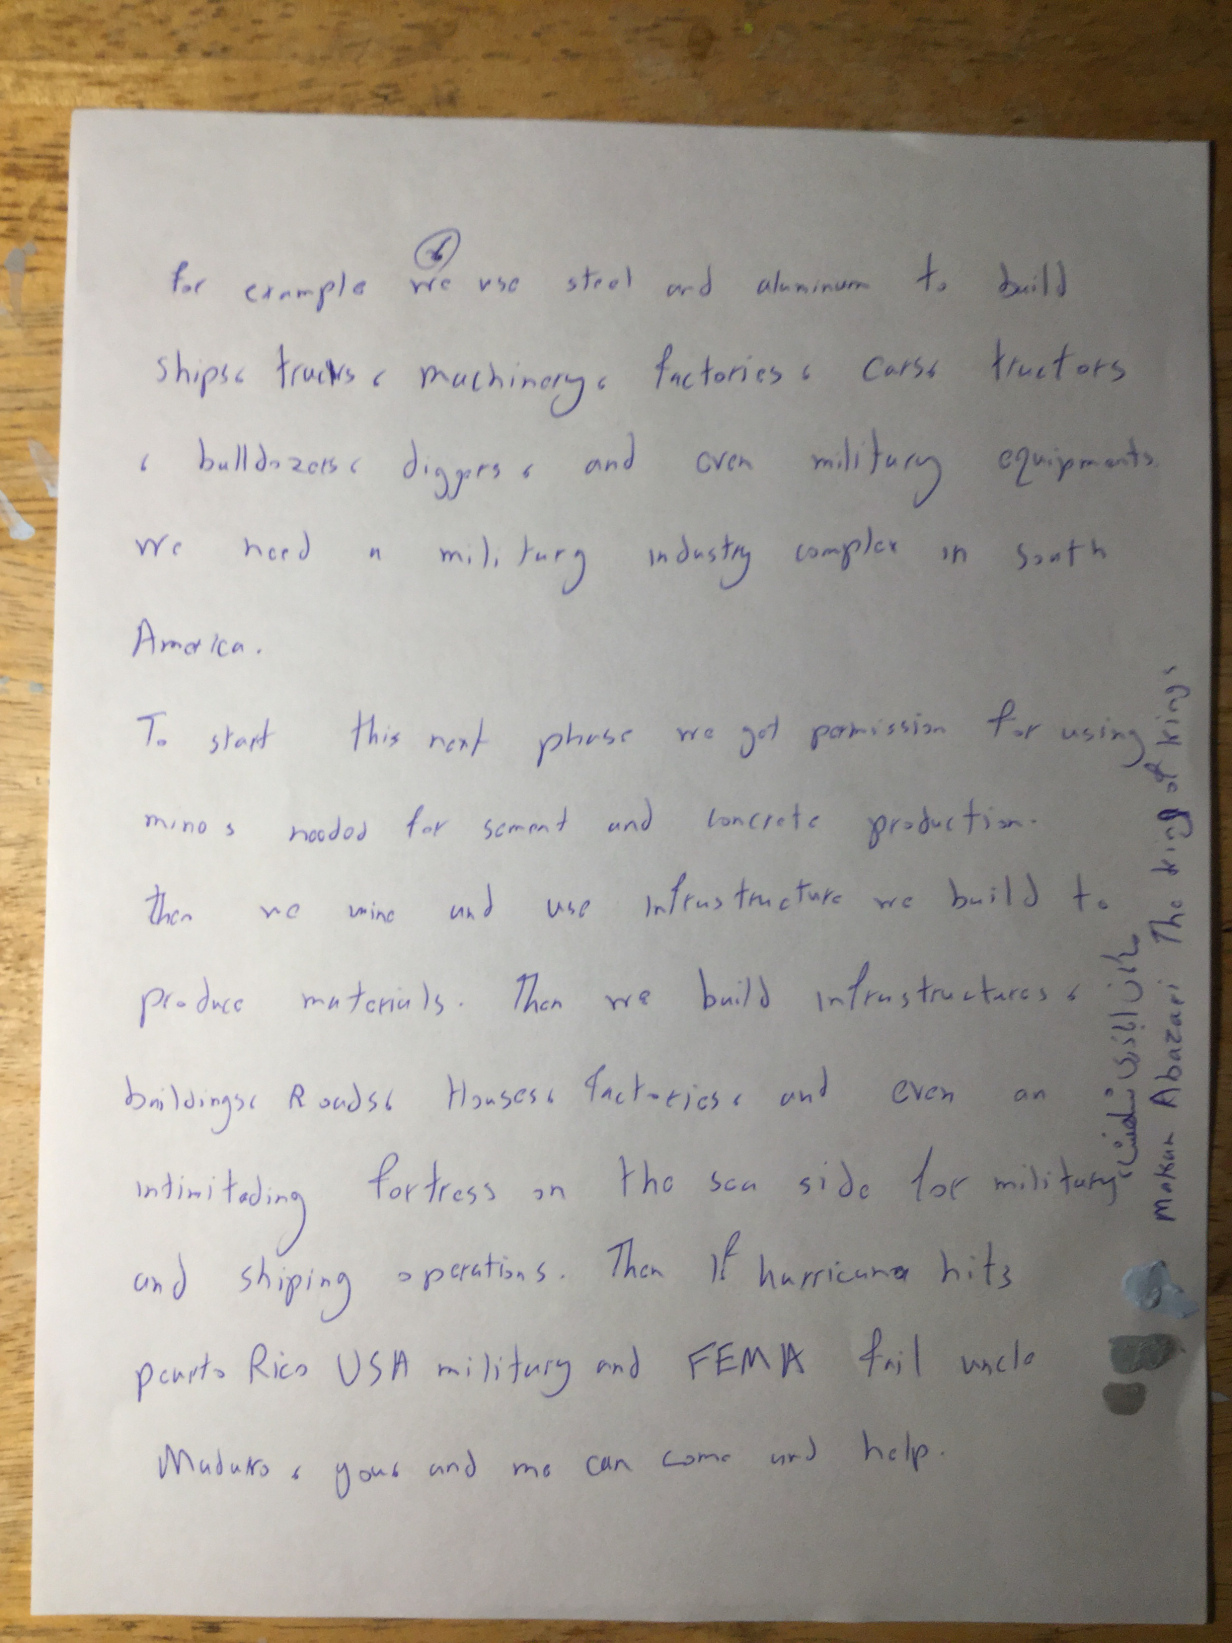 6
for example we use steel and aluminum to build
ships، trucks، machinery، factories، cars، tractors
، bulldozers، diggers، and even military equipments.
we need a military industry complex in south
America.
To start this next phase we get permission for using
mines needed for sement and concrete production.
then we mine and use infrastructure we build to
produce materials. Then we build infrastructures،
buildings، Roads، Houses، factories، and even an
intimitading fortress on the sea side for military
and shiping operations. Then If hurricane hits
peurto Rico USA military and FEMA fail uncle
Maduro، you، and me can come and help.
ماکان اباذری شاهنشاه
Makan Abazari The king of kings